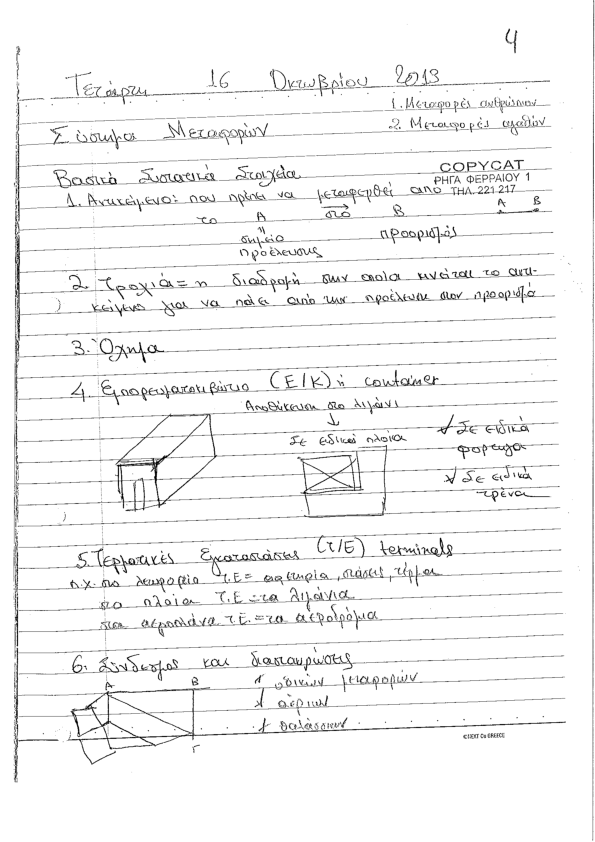 4
Τετάρτη 16 Οκτωβρίου 2013
1. Μεταφορές ανθρώπων
Σύστημα Μεταφορών
2. Μεταφορές αγαθών
Βασικά Συστατικά Στοιχεία
COPYCAT
ΡΗΓΑ ΦΕΡΡΑΙΟΥ 1
ΤΗΛ. 221.217
1. Αντικείμενο: που πρέπει να μεταφερθεί από
το Α στο Β
Α Β
σημείο προορισμός
προέλευσης
2. Τροχιά = η διαδρομή στην οποία κινείται το αντι-
κείμενο για να πάει από την προέλευση στον προορισμό
3. Όχημα
4. Εμπορευματοκιβώτιο (Ε/Κ) ή container
Αποθήκευση στο λιμάνι
Σε ειδικά πλοία
Σε ειδικά
φορτηγά
Σε ειδικά
τρένα
5. Τερματικές Εγκαταστάσεις (Τ/Ε) terminals
π.χ. στο λεωφορείο Τ.Ε = αφετηρία, στάσεις, τέρμα
στα πλοία Τ.Ε = τα λιμάνια
στα αεροπλάνα Τ.Ε. = τα αεροδρόμια
6. Σύνδεσμος και διασταυρώσεις
Α Β
οδικών μεταφορών
αέριων
θαλάσσιων
Γ
©NEXT Co GREECE